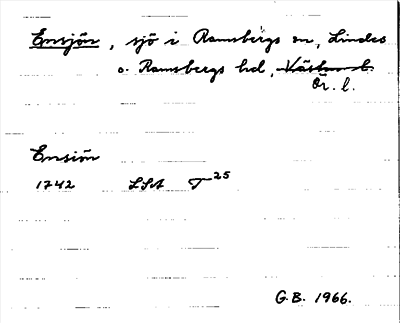 Ensjön, sjö i Ramsbergs sn, Lindes
o. Ramsbergs hd, Västm. l.
Ör. l.
Ensiön
1742 LSA T 25
G.B. 1966.